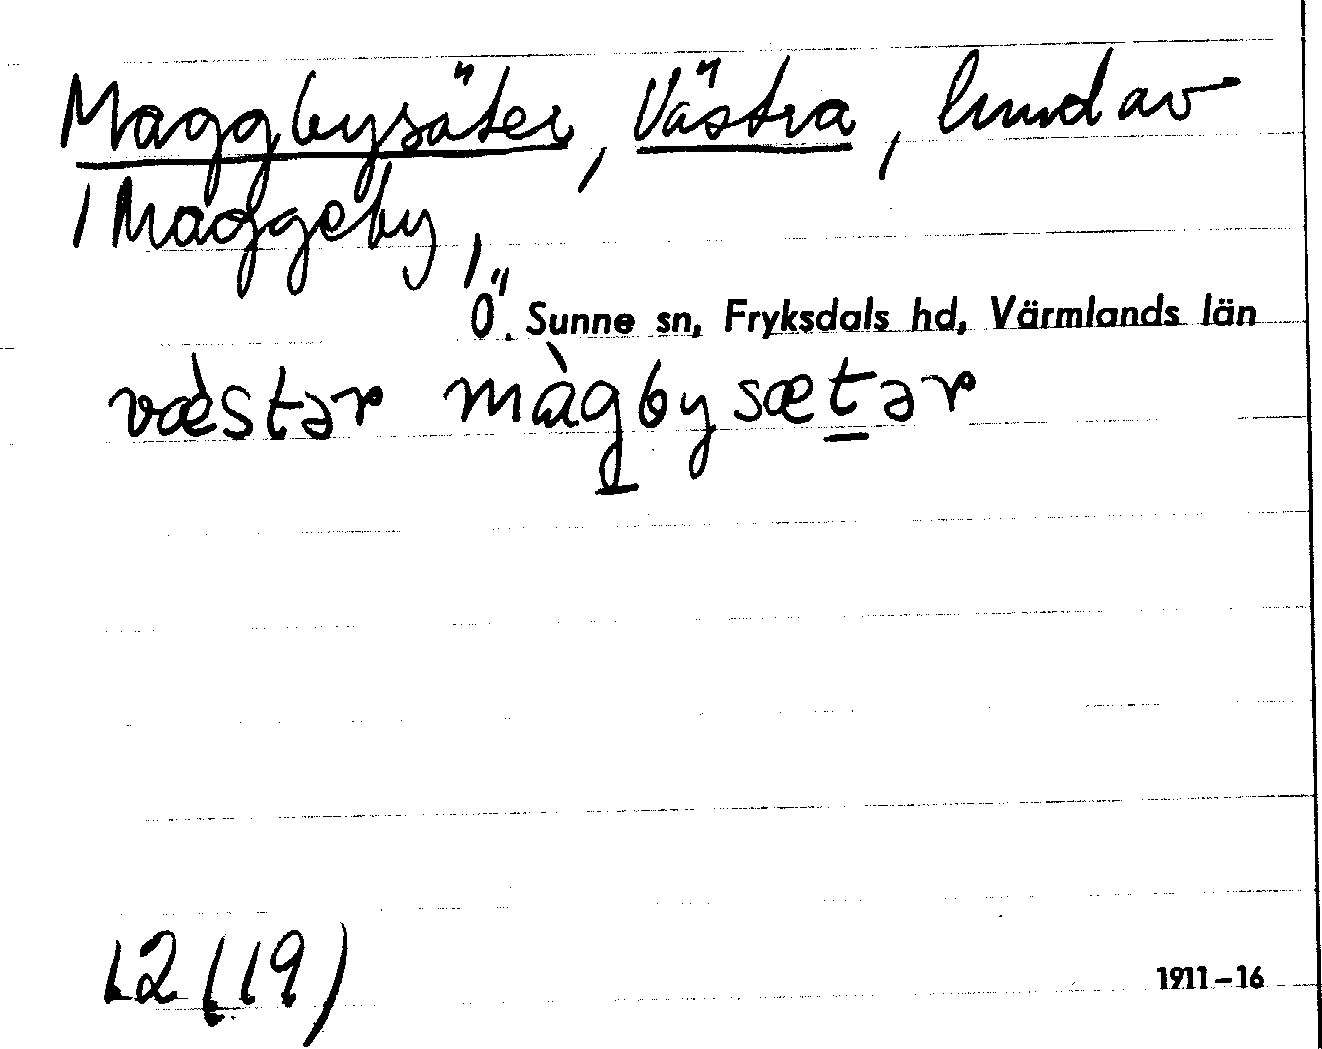 Maggbysäter, Västra, lmd av
1 Maggeby,
Ö. Sunne sn, Fryksdals hd, Värmlands län
væ̀stər màgbysætər
L2 (19)
1911–16